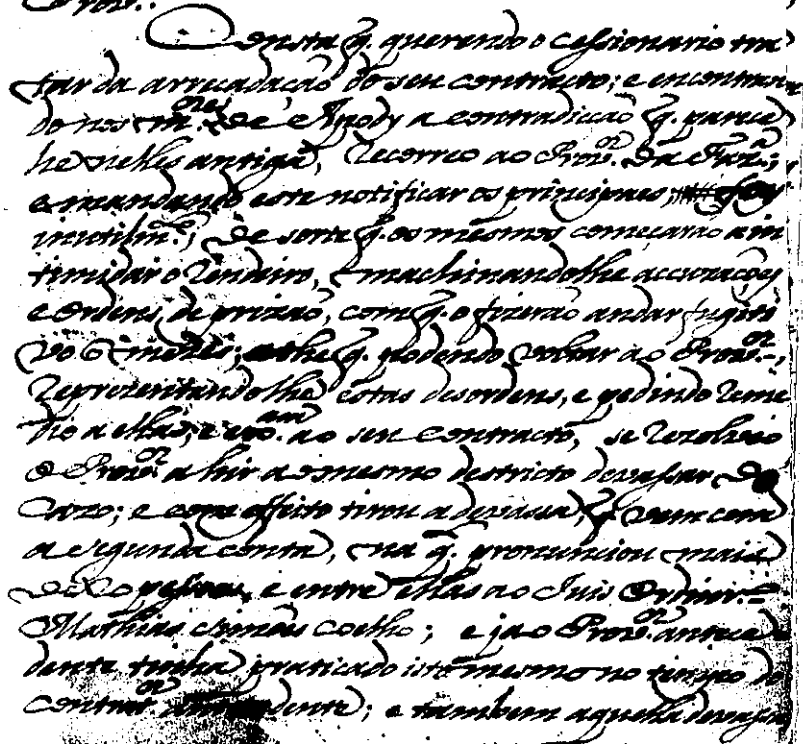 Prov.ᵒʳ
Consta q̃. querendo o cessionario tra
tar da arrecadação do seu contracto; e encontran
do nos m.ᵒʳᵉˢ de Apody a contradicção q̃. parece
he nelles antiga, recorreo ao Prov.ᵒʳ da Faz.ᵃ;
e mandando este notificar os principaes, foy
inutilm.ᵉ; de sorte q̃. os mesmos começarão a in
timidar o Rendeiro, machinandolhe accuzaçoẽs
e Ordens de prizão, com q̃. o fizerão andar fugiti
vo 6 mezes; athe q̃. podendo voltar ao Prov.ᵒʳ,
reprezentandolhe estas desordens, e pedindo reme
dio a ellas, e ao seu Contracto, se rezolveo
o Prov.ᵒʳ a hir ao mesmo destricto devassar do
Cazo; e com effeito tirou a devassa, q̃ vem com
a segunda conta, na q̃. pronunciou mais
de pessoas, e entre ellas ao Juis Ordinr.ᵒ
Mathias Simoẽs Coelho; e já o Prov.ᵒʳ antece
dente tinha praticado isto mesmo no tempo do
Contrat.ᵒʳ antecedente; e tambem aquella devassa